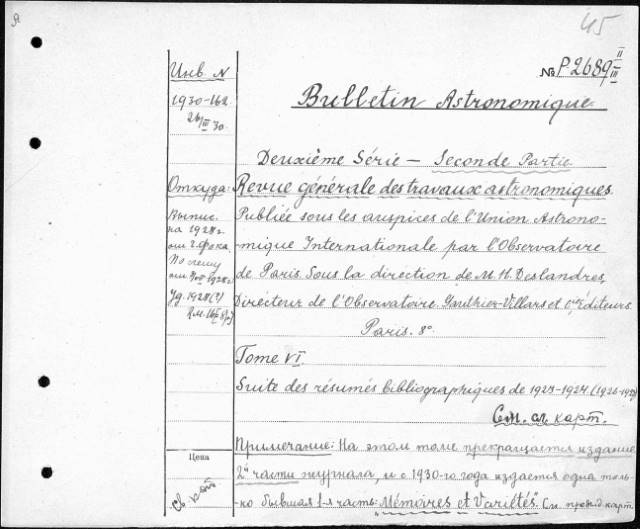 45
№ P. 2689 II/III
Инв. N
1930-162
26/III 30.
Bulletin Astronomique
Deuxième Série — Seconde Partie
Откуда:
Revue générale des travaux astronomiques.
Publiée sous les auspices de l'Union Astrono-
mique Internationale par l'Observatoire
de Paris. Sous la direction de M. H. Deslandres,
Directeur de l'Observatoire. Gauthier-Villars et Cie, Editeurs
Paris. 8°
Выпис.
на 1928 г.
от г. Фока
По счету
Tome VI
Suite des résumés bibliographiques de 1923-1924. (1926-
См. сл. карт.
Цена
Примечание: На этом томе прекращается издание
2й части журнала, и с 1930-го года издается одна толь-
ко бывшая 1-я часть: „Mémoires et Variétés". См. пред. карт.